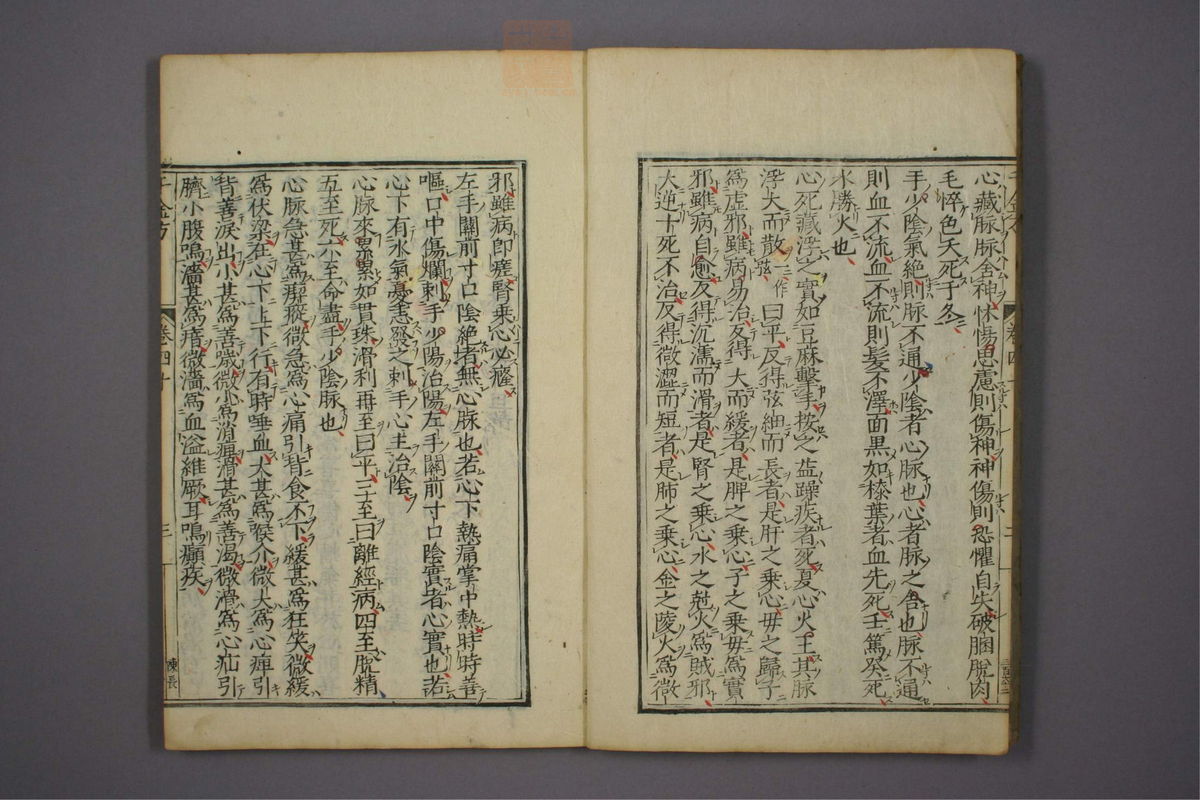 心藏脉脉舍神怵惕思慮則傷神神傷則恐懼自失破䐃脫肉
毛悴色夭死于冬
手少陰氣絕則脉不通少陰者心脉也心者脉之合也脉不通
則血不流血不流則髮不澤面黑如漆葉者血先死壬篤癸死
水勝火也
心死藏浮之實如豆麻擊手按之益躁疾者死夏心火王其脉
浮大而散一作弦曰平反得弦細而長者是肝之乘心毋之歸子
爲虛邪雖病易治反得大而緩者是脾之乘心子之乘毋爲實
邪雖病自愈反得沉濡而滑者是腎之乘心水之尅火爲賊邪
大逆十死不治反得微澀而短者是肺之乘心金之陵火爲微
千金方
卷四十
三
邪雖病卽瘥腎乘心必癃
左手關前寸口陰絕者無心脉也若心下熱痛掌中熱時時善
嘔口中傷爛刺手少陽治陽左手關前寸口陰實者心實也若
心下有水氣憂恚發之刺手心主治陰
心脉來累累如貫珠滑利再至曰平三至曰離經病四至脫精
五至死六至命盡手少陰脉也
心脉急甚爲瘈瘲微急爲心痛引背食不下緩甚爲狂笑微緩
爲伏梁在心下上下行有時唾血大甚爲喉介微大爲心痺引
背善淚出小甚爲善噦微小爲消癉滑甚爲善渴微滑爲心疝引
臍小腹鳴濇甚爲瘖微濇爲血溢維厥耳鳴癲疾
陳長